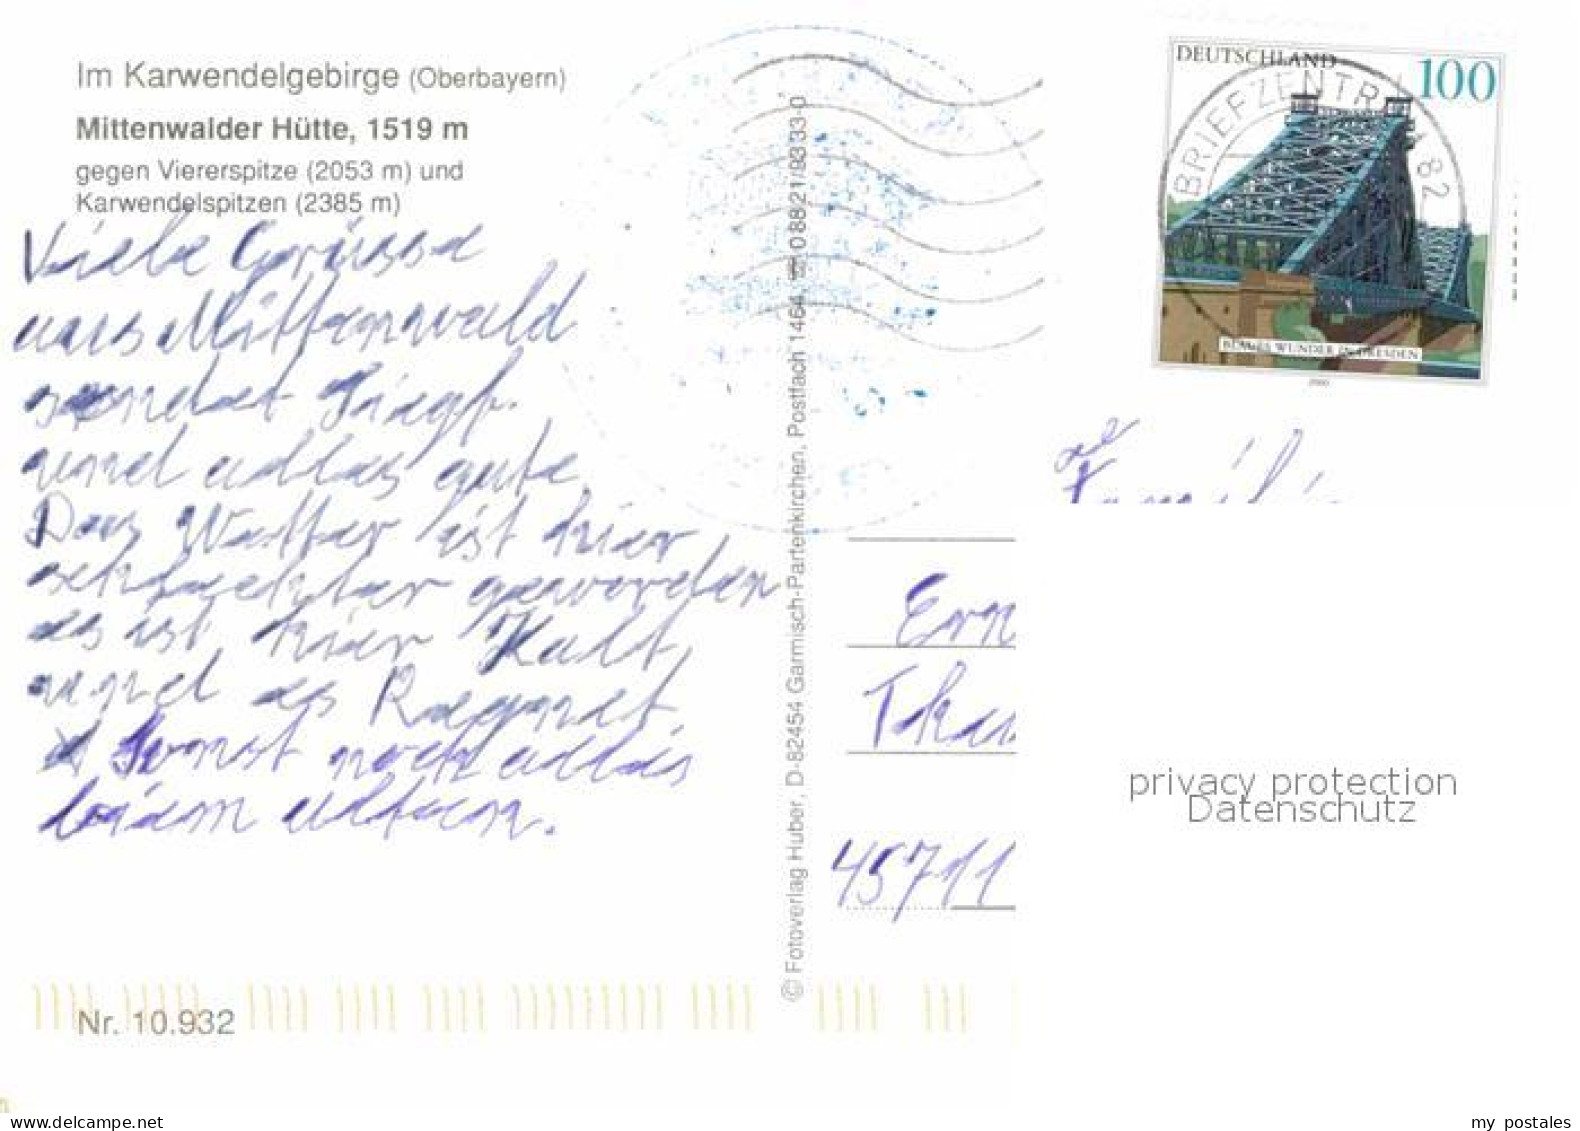 Im Karwendelgebirge (Oberbayern)
Mittenwalder Hütte, 1519 m
gegen Viererspitze (2053 m) und
Karwendelspitzen (2385 m)
Viele Grüsse
aus Mittenwald
sendet Siegf.
und alles gute.
Das Wetter ist hier
schlechter geworden
es ist hier Kalt
und es Regnet.
Sonst noch alles
beim alten.
Nr. 10.932
© Fotoverlag Huber, D-82454 Garmisch-Partenkirchen, Postfach 1464, ☎ 0 88 21/93 33-0
DEUTSCHLAND
100
BRIEFZENTRUM 82
BLAUES WUNDER IN DRESDEN
2000
Familie
Ern
45711
privacy protection
Datenschutz
www.delcampe.net
my_postales